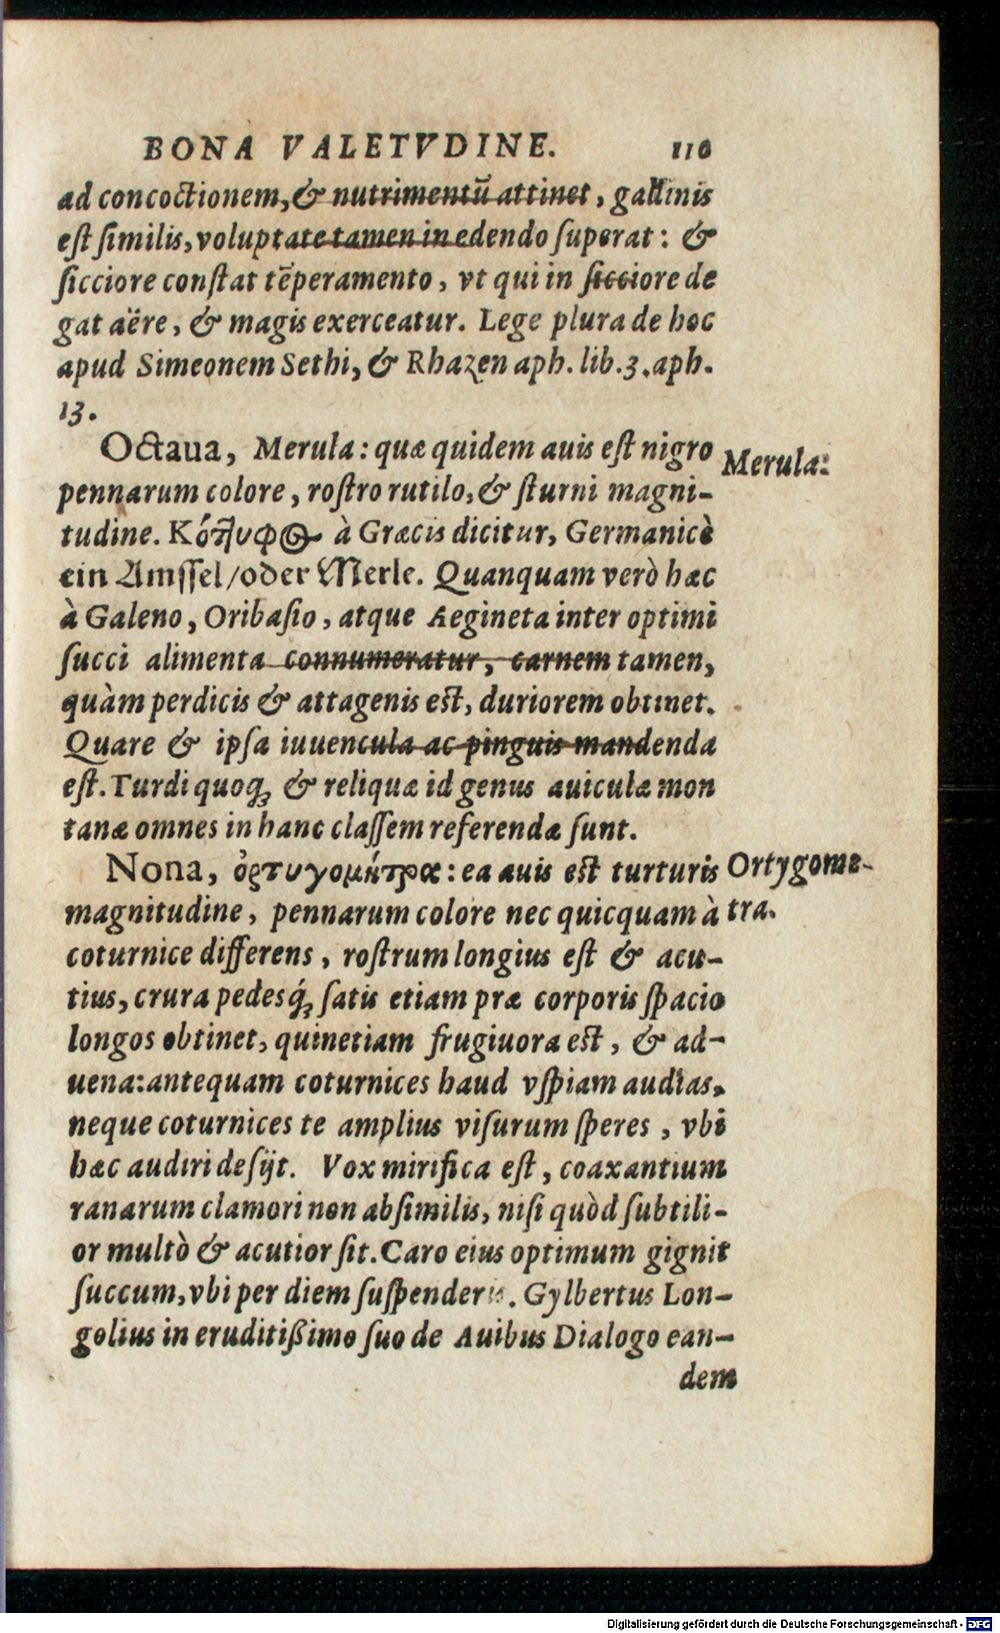 BONA VALETVDINE. 110
ad concoctionem, & nutrimentū attinet, gallinis
est similis, voluptate tamen in edendo superat: &
sicciore constat tēperamento, vt qui in sicciore de
gat aëre, & magis exerceatur. Lege plura de hoc
apud Simeonem Sethi, & Rhazen aph. lib. 3. aph.
13.
Octaua, Merula: quæ quidem auis est nigro
Merula:
pennarum colore, rostro rutilo, & sturni magni-
tudine. Κότλυφ à Græcis dicitur, Germanicè
ein Amssel/oder Merle. Quanquam verò hæc
à Galeno, Oribasio, atque Aegineta inter optimi
succi alimenta connumeratur, carnem tamen,
quàm perdicis & attagenis est, duriorem obtinet.
Quare & ipsa iuuencula ac pinguis mandenda
est. Turdi quoq; & reliquæ id genus auiculæ mon
tanæ omnes in hanc classem referendæ sunt.
Nona, ὀρτυγομήτρα: ea auis est turturis
Ortygome-
magnitudine, pennarum colore nec quicquam à
tra.
coturnice differens, rostrum longius est & acu-
tius, crura pedesq́; satis etiam præ corporis spacio
longos obtinet, quinetiam frugiuora est, & ad-
uena: antequam coturnices haud vspiam audias,
neque coturnices te amplius visurum speres, vbi
hæc audiri desijt. Vox mirifica est, coaxantium
ranarum clamori non absimilis, nisi quòd subtili-
or multò & acutior sit. Caro eius optimum gignit
succum, vbi per diem suspenderis. Gylbertus Lon-
golius in eruditißimo suo de Auibus Dialogo ean-
dem
Digitalisierung gefördert durch die Deutsche Forschungsgemeinschaft - DFG